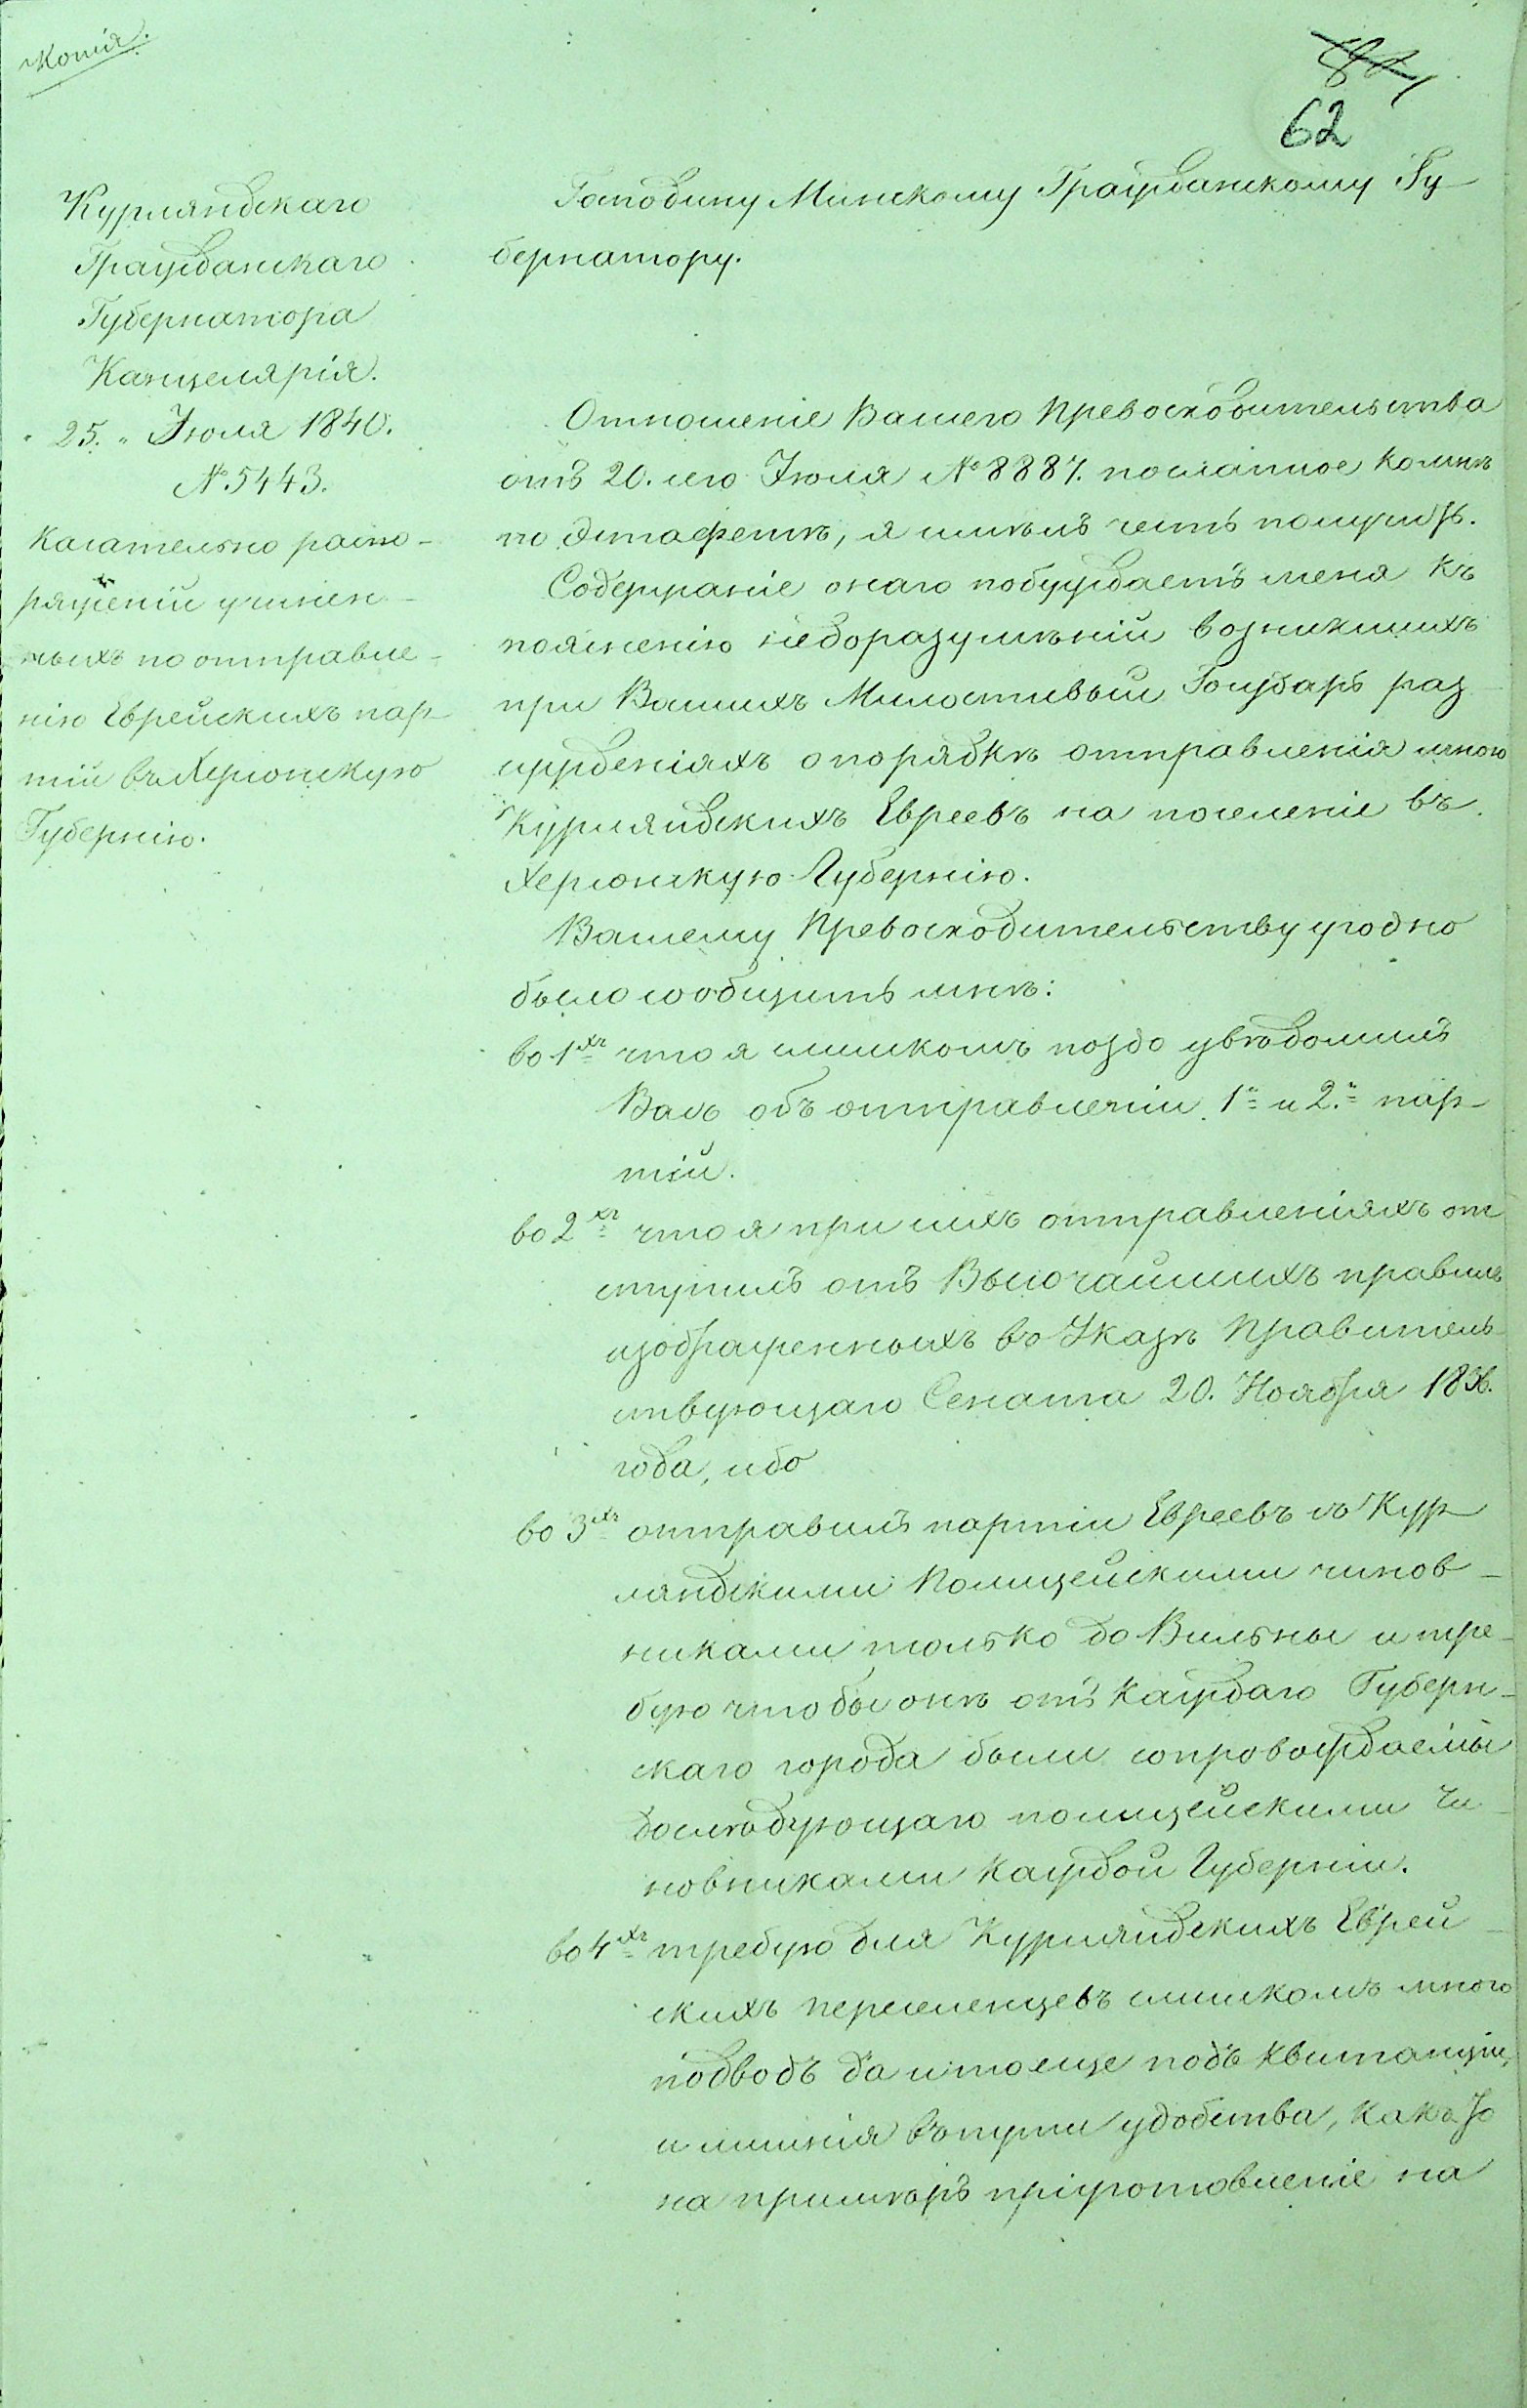 Копія.
62
Курляндскаго
Гражданскаго
Губернатора
Канцелярія.
25. Іюля 1840.
№. 5443.
Касательно распо-
ряженій учинен-
ныхъ по отправле-
нію Еврейскихъ пар-
тій въ Херсонскую
Губернію.
Господину Минскому Гражданскому Гу-
бернатору.
Отношеніе Вашего Превосходительства
отъ 20. сего Іюля № 8887. посланное ко мнѣ
по эстафетѣ, я имѣлъ честь получить.
Содержаніе онаго побуждаетъ меня къ
поясненію недоразумѣній возникшихъ
при Вашихъ Милостивый Государь раз-
сужденіяхъ о порядкѣ отправленія мною
Курляндскихъ Евреевъ на поселеніе въ
Херсонскую Губернію.
Вашему Превосходительству угодно
было сообщить мнѣ:
во 1хъ что я слишкомъ поздо увѣдомилъ
Васъ объ отправленіи 1й и 2й пар-
тій.
во 2хъ что я при сихъ отправленіяхъ от-
ступилъ отъ Высочайшихъ правилъ
изображенныхъ въ Указѣ Правитель-
ствующаго Сената 20. Ноября
года, ибо
во 3хъ отправилъ партіи Евреевъ съ Кур-
ляндскими Полицейскими чинов-
никами только до Вильны и тре-
бую чтобы онѣ отъ каждаго Губерн-
скаго города были сопровождаемы
до слѣдующаго полицейскими Чи-
новниками каждой Губерніи.
во 4хъ требую для Курляндскихъ Еврей-
скихъ переселенцевъ слишкомъ много
подводъ да и то еще подъ квитанціи,
и лишнія въ пути удобства, какъ то
на примѣръ приготовленіе на